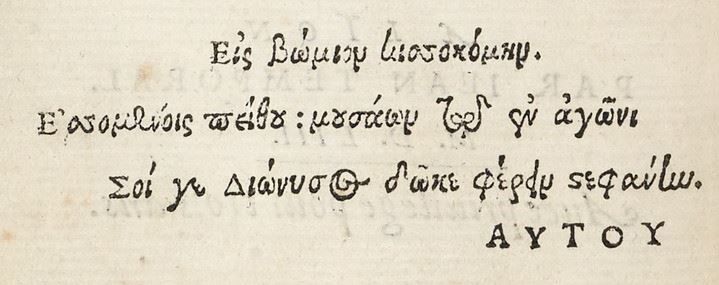 Εἰς βώμιον κισσοκόμην.
Ἐσσομένοις πείθου: μουσάων ἐν ἀγῶνι
Σοί γε Διώνυσος δῶκε φέρειν στεφάνην.
ΑΥΤΟΥ